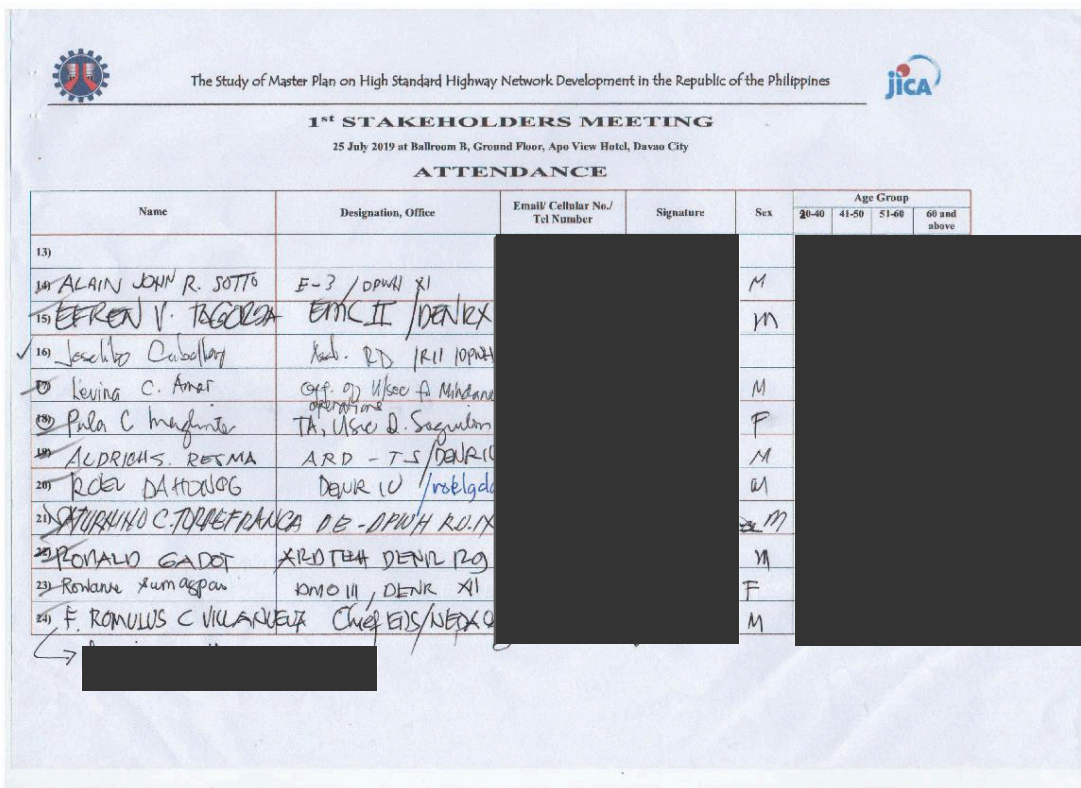 The Study of Master Plan on High Standard Highway Network Development in the Republic of the Philippines
jICA
1st STAKEHOLDERS MEETING
25 July 2019 at Ballroom B, Ground Floor, Apo View Hotel, Davao City
ATTENDANCE
Name Designation, Office Email/ Cellular No./ Tel Number Signature Sex Age Group
20-40 41-50 51-60 60 and above
13)
14) ALAIN JOHN R. SOTTO E-3 / DPWH XI M
15) EFREN V. TAGORDA EMC II / DENRX M
16) Joselito Caballero RD /R11 /DPWH
17) Levina C. Amar Off. of U/sec for Mindana operations M
18) C TA, Usec D. F
19) ALDRICH S. RESMA ARD - TS / DENR10 M
20) ROEL DAHONOG DENR 10 /roelgda M
21) SATURNINO C. TORREFRANCA DE - DPWH R.O. IX M
22) RONALD GADOT ARD TECH DENR R9 M
23) DMO III, DENR XII F
24) F. ROMULUS C VILLANUEVA Chief EDS/NEDA M